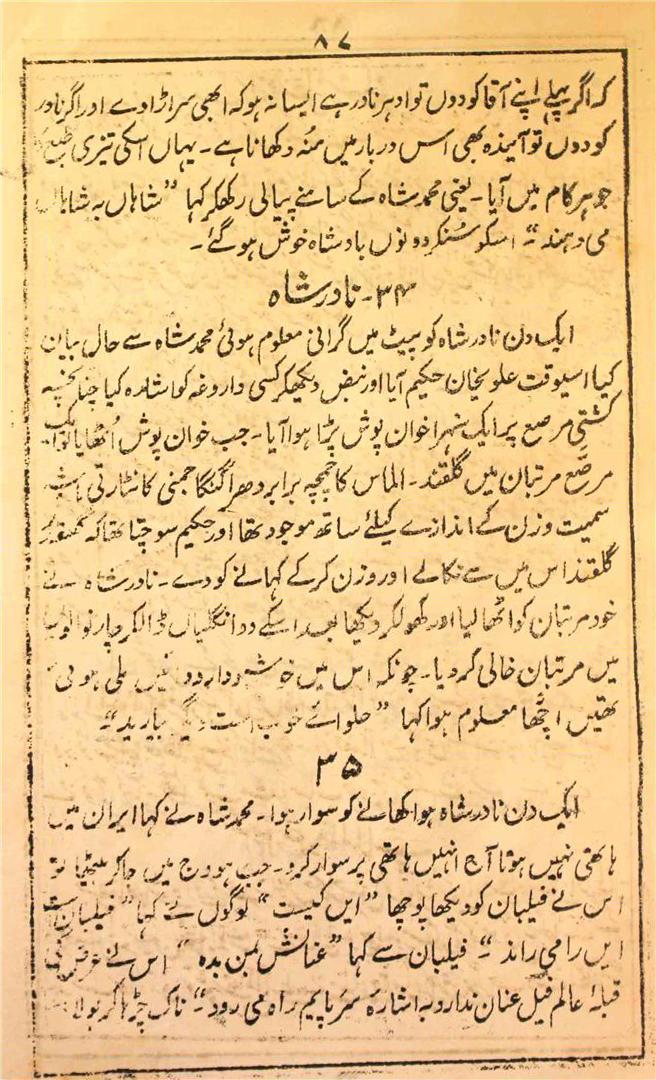 ۸۷
کہ اگر پہلے اپنے آقا کو دوں تو ادہر نادر ہے ایسا نہ ہو کہ ابھی سر اڑا دے اور اگر نادر
کو دوں تو آیندہ بھی اس دربار میں منہ دکھانا ہے ۔ یہاں اسکی تیزی طبع
جوہر کام میں آیا ۔ یعنی محمد شاہ کے سامنے پیالی رکھکر کہا ”شاہاں بہ شاہاں
می دہند“ اسکو سُنکر دونوں بادشاہ خوش ہو گئے ۔
۳۴ ۔ نادر شاہ
ایک دن نادر شاہ کو پیٹ میں گرانی معلوم ہوئی محمد شاہ سے حال بیان
کیا اسیوقت علویخان حکیم آیا اور نبض دیکھکر کسی داروغہ کو اشارہ کیا چنانچہ
کشتی مرصع پر ایک سنہرا خوان پوش پڑا ہوا آیا ۔ جب خوان پوش اُٹھایا تو ایک
مرصّع مرتبان میں گلقند ۔ الماس کا چمچہ برابر دھرا گنگا جمنی کانٹا رتی
سمیت وزن کے اندازے کیلئے ساتھ موجود تھا اور حکیم سوچتا تھا کہ
گلقند اس میں سے نکالے اور وزن کر کے کہانے کو دے ۔ نادر شاہ نے
خود مرتبان کو اُٹھا لیا اور کھولکر دیکھا بعد اسکے دو انگلیاں ڈالکر چار نوالوں
میں مرتبان خالی کر دیا ۔ چونکہ اس میں خوشبودار دوائیں ملی ہوئی
تھیں اچّھا معلوم ہوا کہا ”حلوائے خوب است دیگر بیارید“
۳۵
ایک دن نادر شاہ ہوا کھانے کو سوار ہوا ۔ محمد شاہ نے کہا ایران میں
ہاتھی نہیں ہوتا آج انہیں ہاتھی پر سوار کرو ۔ جب ہودج میں جا کر بیٹھا تو
اس نے فیلبان کو دیکھا پوچھا ”ایں کیست“ لوگوں نے کہا ”فیلبان است
ایں را می راند“ فیلبان سے کہا ”عنانش بمن بدہ“ اس نے عرض کی
قبلۂ عالم فیل عنان ندارد بہ اشارۂ سر پایم راہ می رود“ ناک چڑہا کر بولا